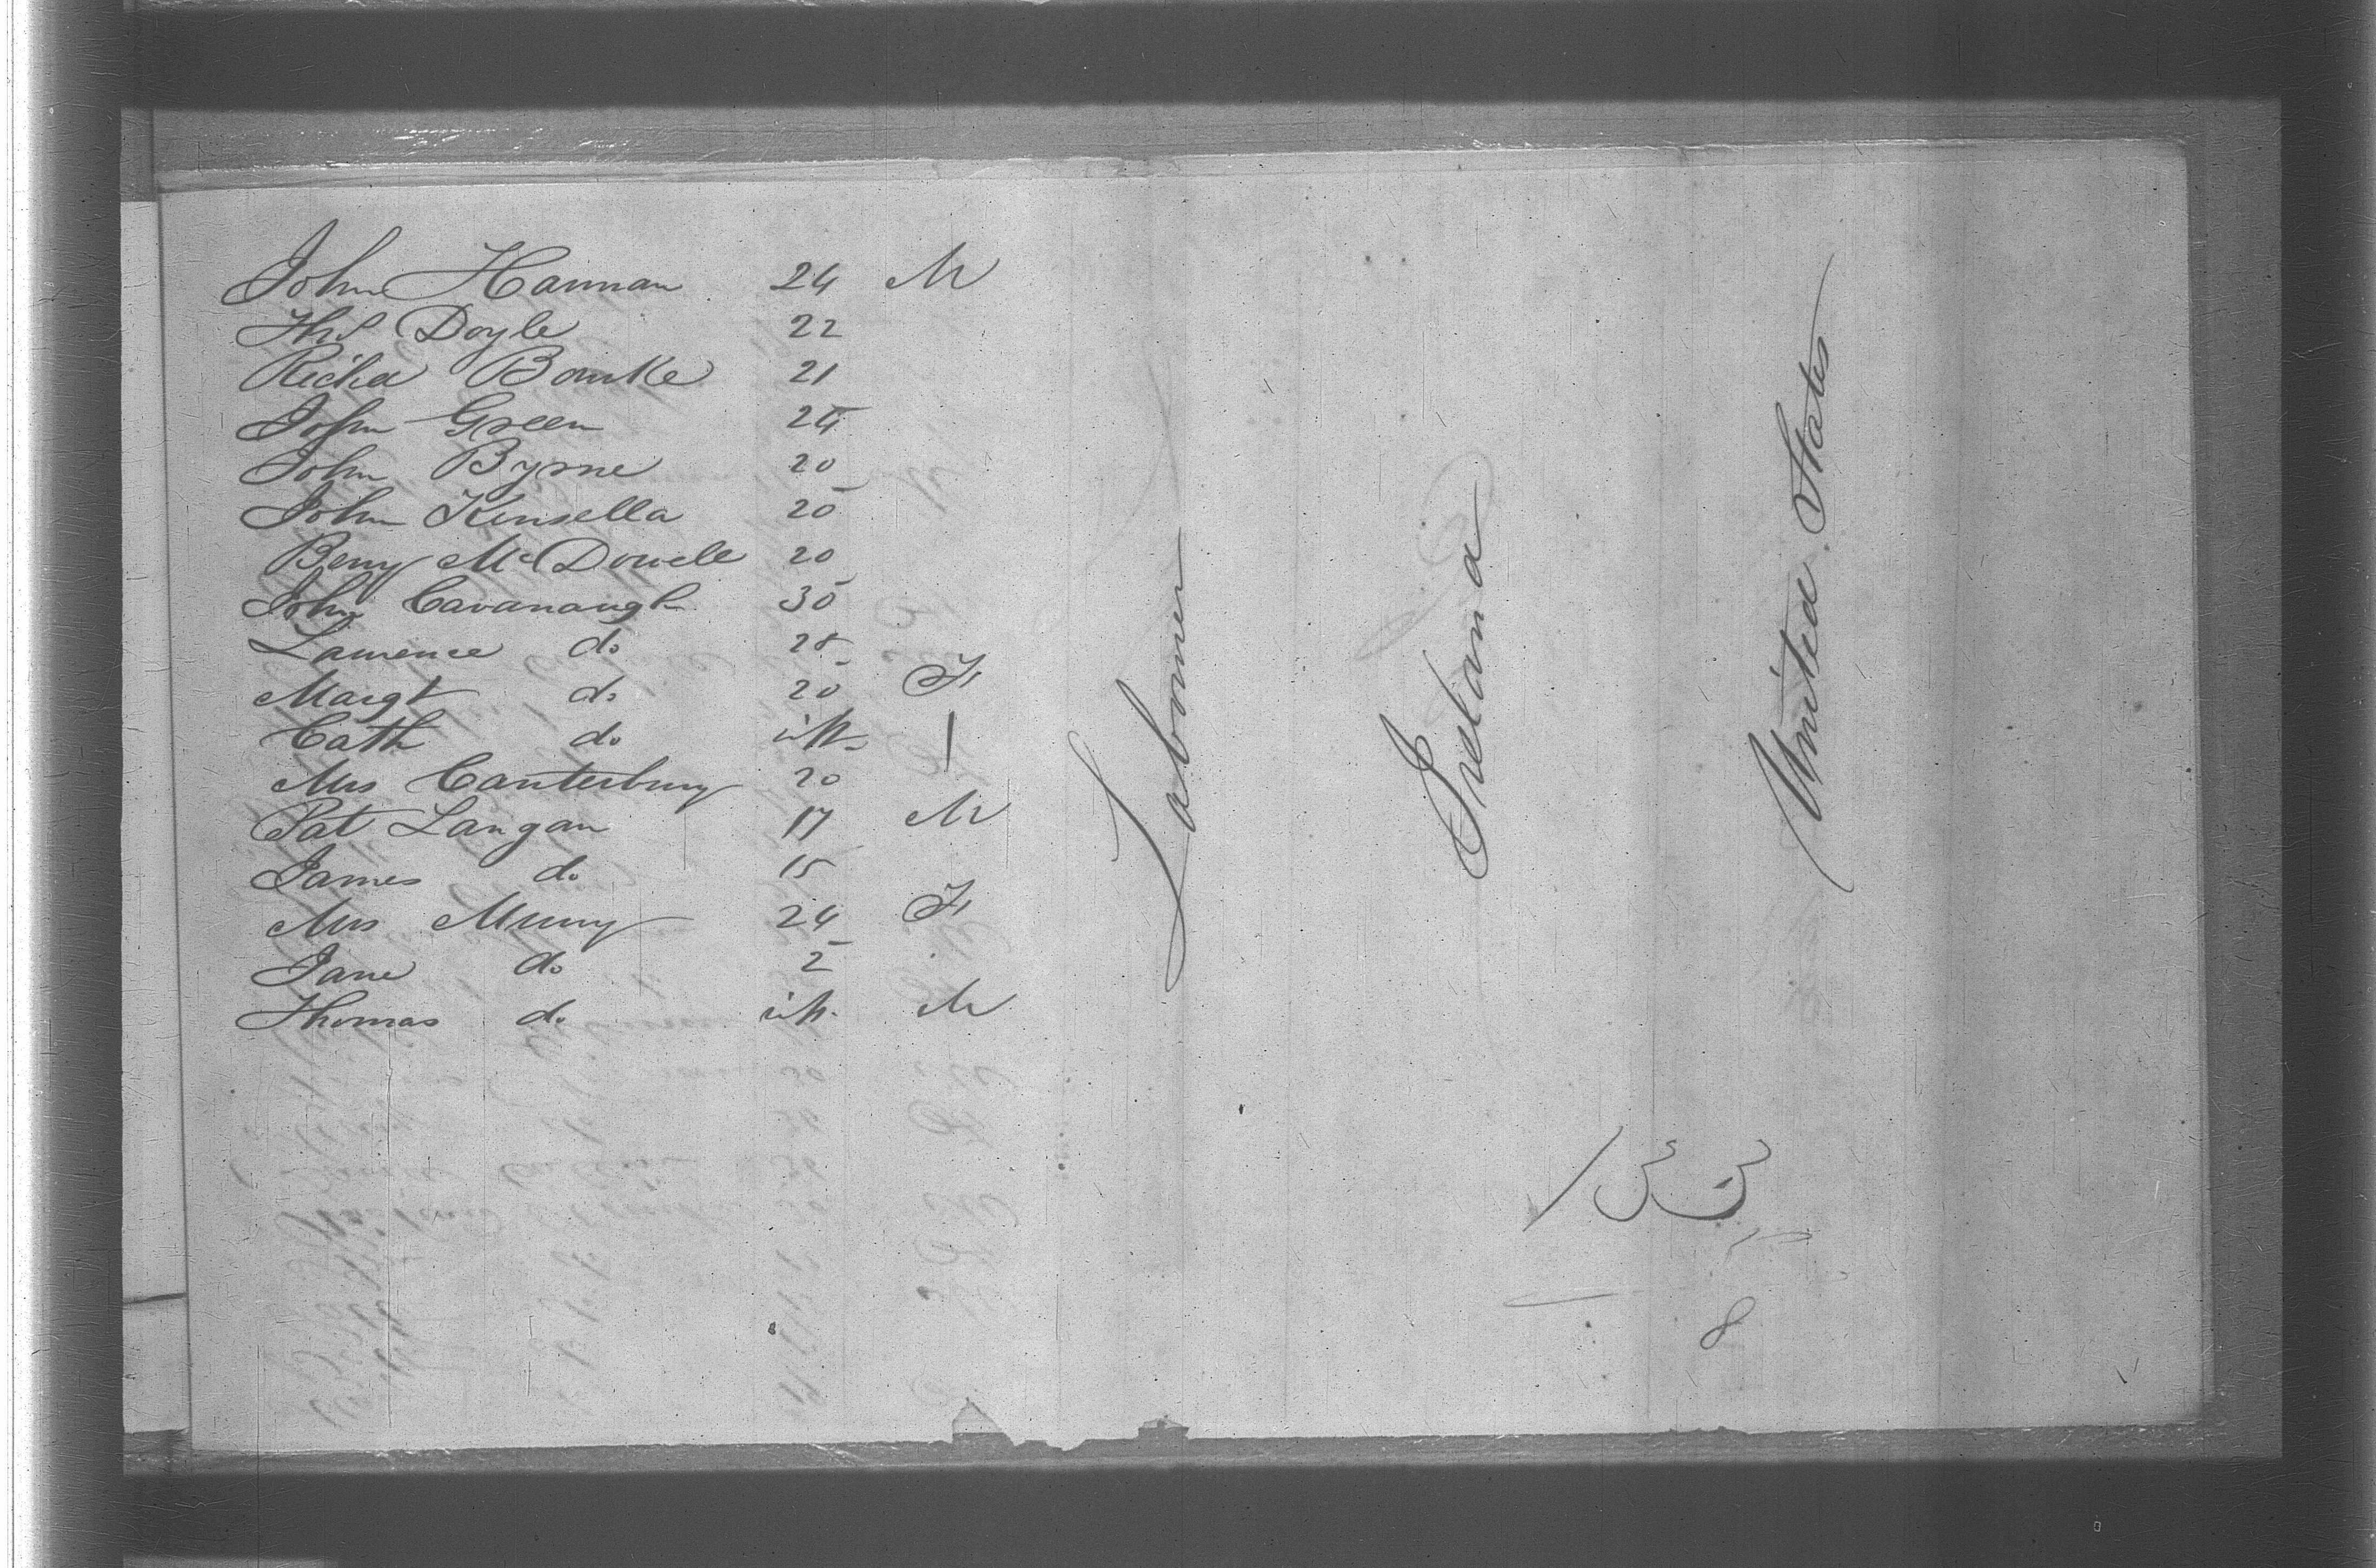 John Hannan 24 M
Ths Doyle 22
Richd Bourke 21
John Green 24
John Byrne 20
John Kinsella 20
Beny McDowell 20
John Cavanaugh 30
Lawrence do 28
Margt do 20 F
Cath do inft
Mrs Canterbury 20
Pat Langan 17 M
James do 15
Mrs Murry 24 F
Jane do 2
Thomas do inft M
Labourer
Ireland
United States
133
8